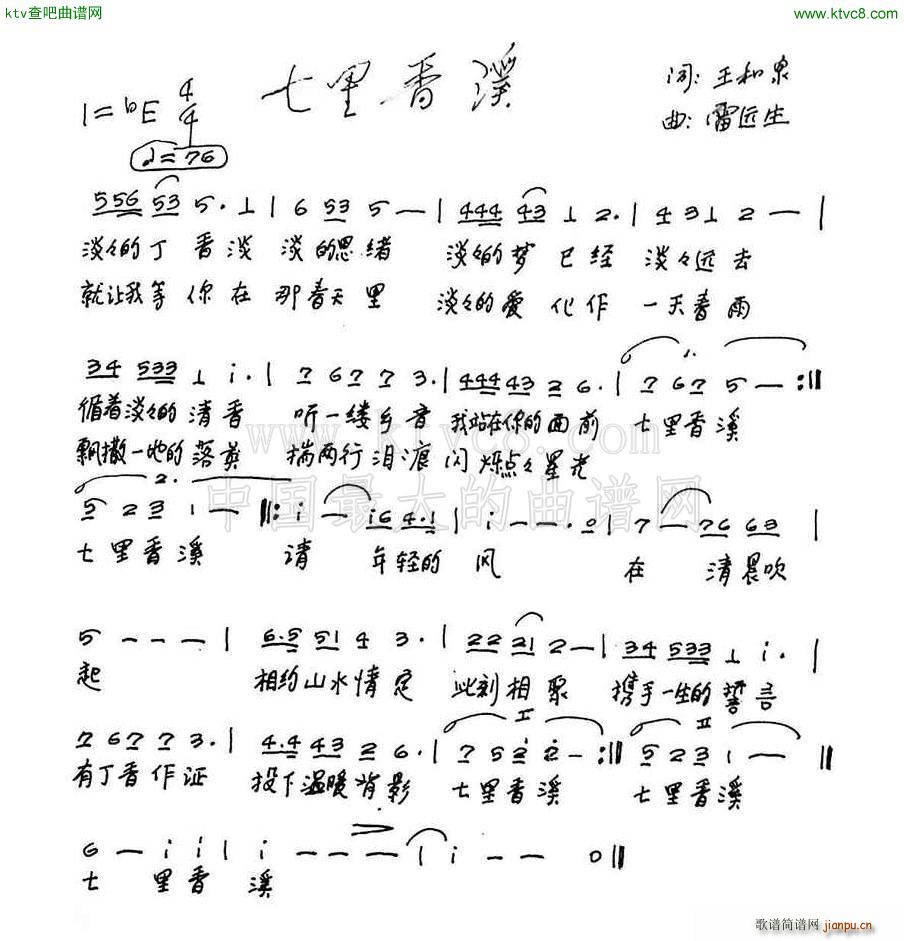 ktv查吧曲谱网 www.ktvc8.com
七里香溪
词:王和泉
1=bE 4/4
曲:雷远生
♩=76
556 53 5· 1 | 6 53 5 — | 444 43 1 2· | 4 31 2 — |
淡々的丁香淡 淡的思绪 淡々的梦已经 淡々远去
就让我等你在 那春天里 淡々的爱化作 一天春雨
1.
34 533 1 i· | 7 67 7 3· | 444 43 2 6· | 7 67 5 — :||
循着淡々的清香 听一缕乡音 我站在你的面前 七里香溪
飘撒一地的落英 揣两行泪痕 闪烁点々星光
www.ktvc8.com
中国最大的曲谱网
2.
5 23 1 — ||: i — i6 4·1 | i — — ·0 | 7 — 76 63 |
七里香溪 请 年轻的 风 在 清晨吹
5 — — — | 6·5 51 4 3· | 22 21 2 — | 34 533 1 i· |
起 相约山水情定 此刻相聚 携手一生的誓言
I II
7 67 7 3· | 4·4 43 2 6· | 7 52 2 — :|| 5 23 1 — ||
有丁香作证 投下温暖背影 七里香溪 七里香溪
6 — i i | i — — — | i — — 0 ||
七 里香 溪
歌谱简谱网 jianpu.cn